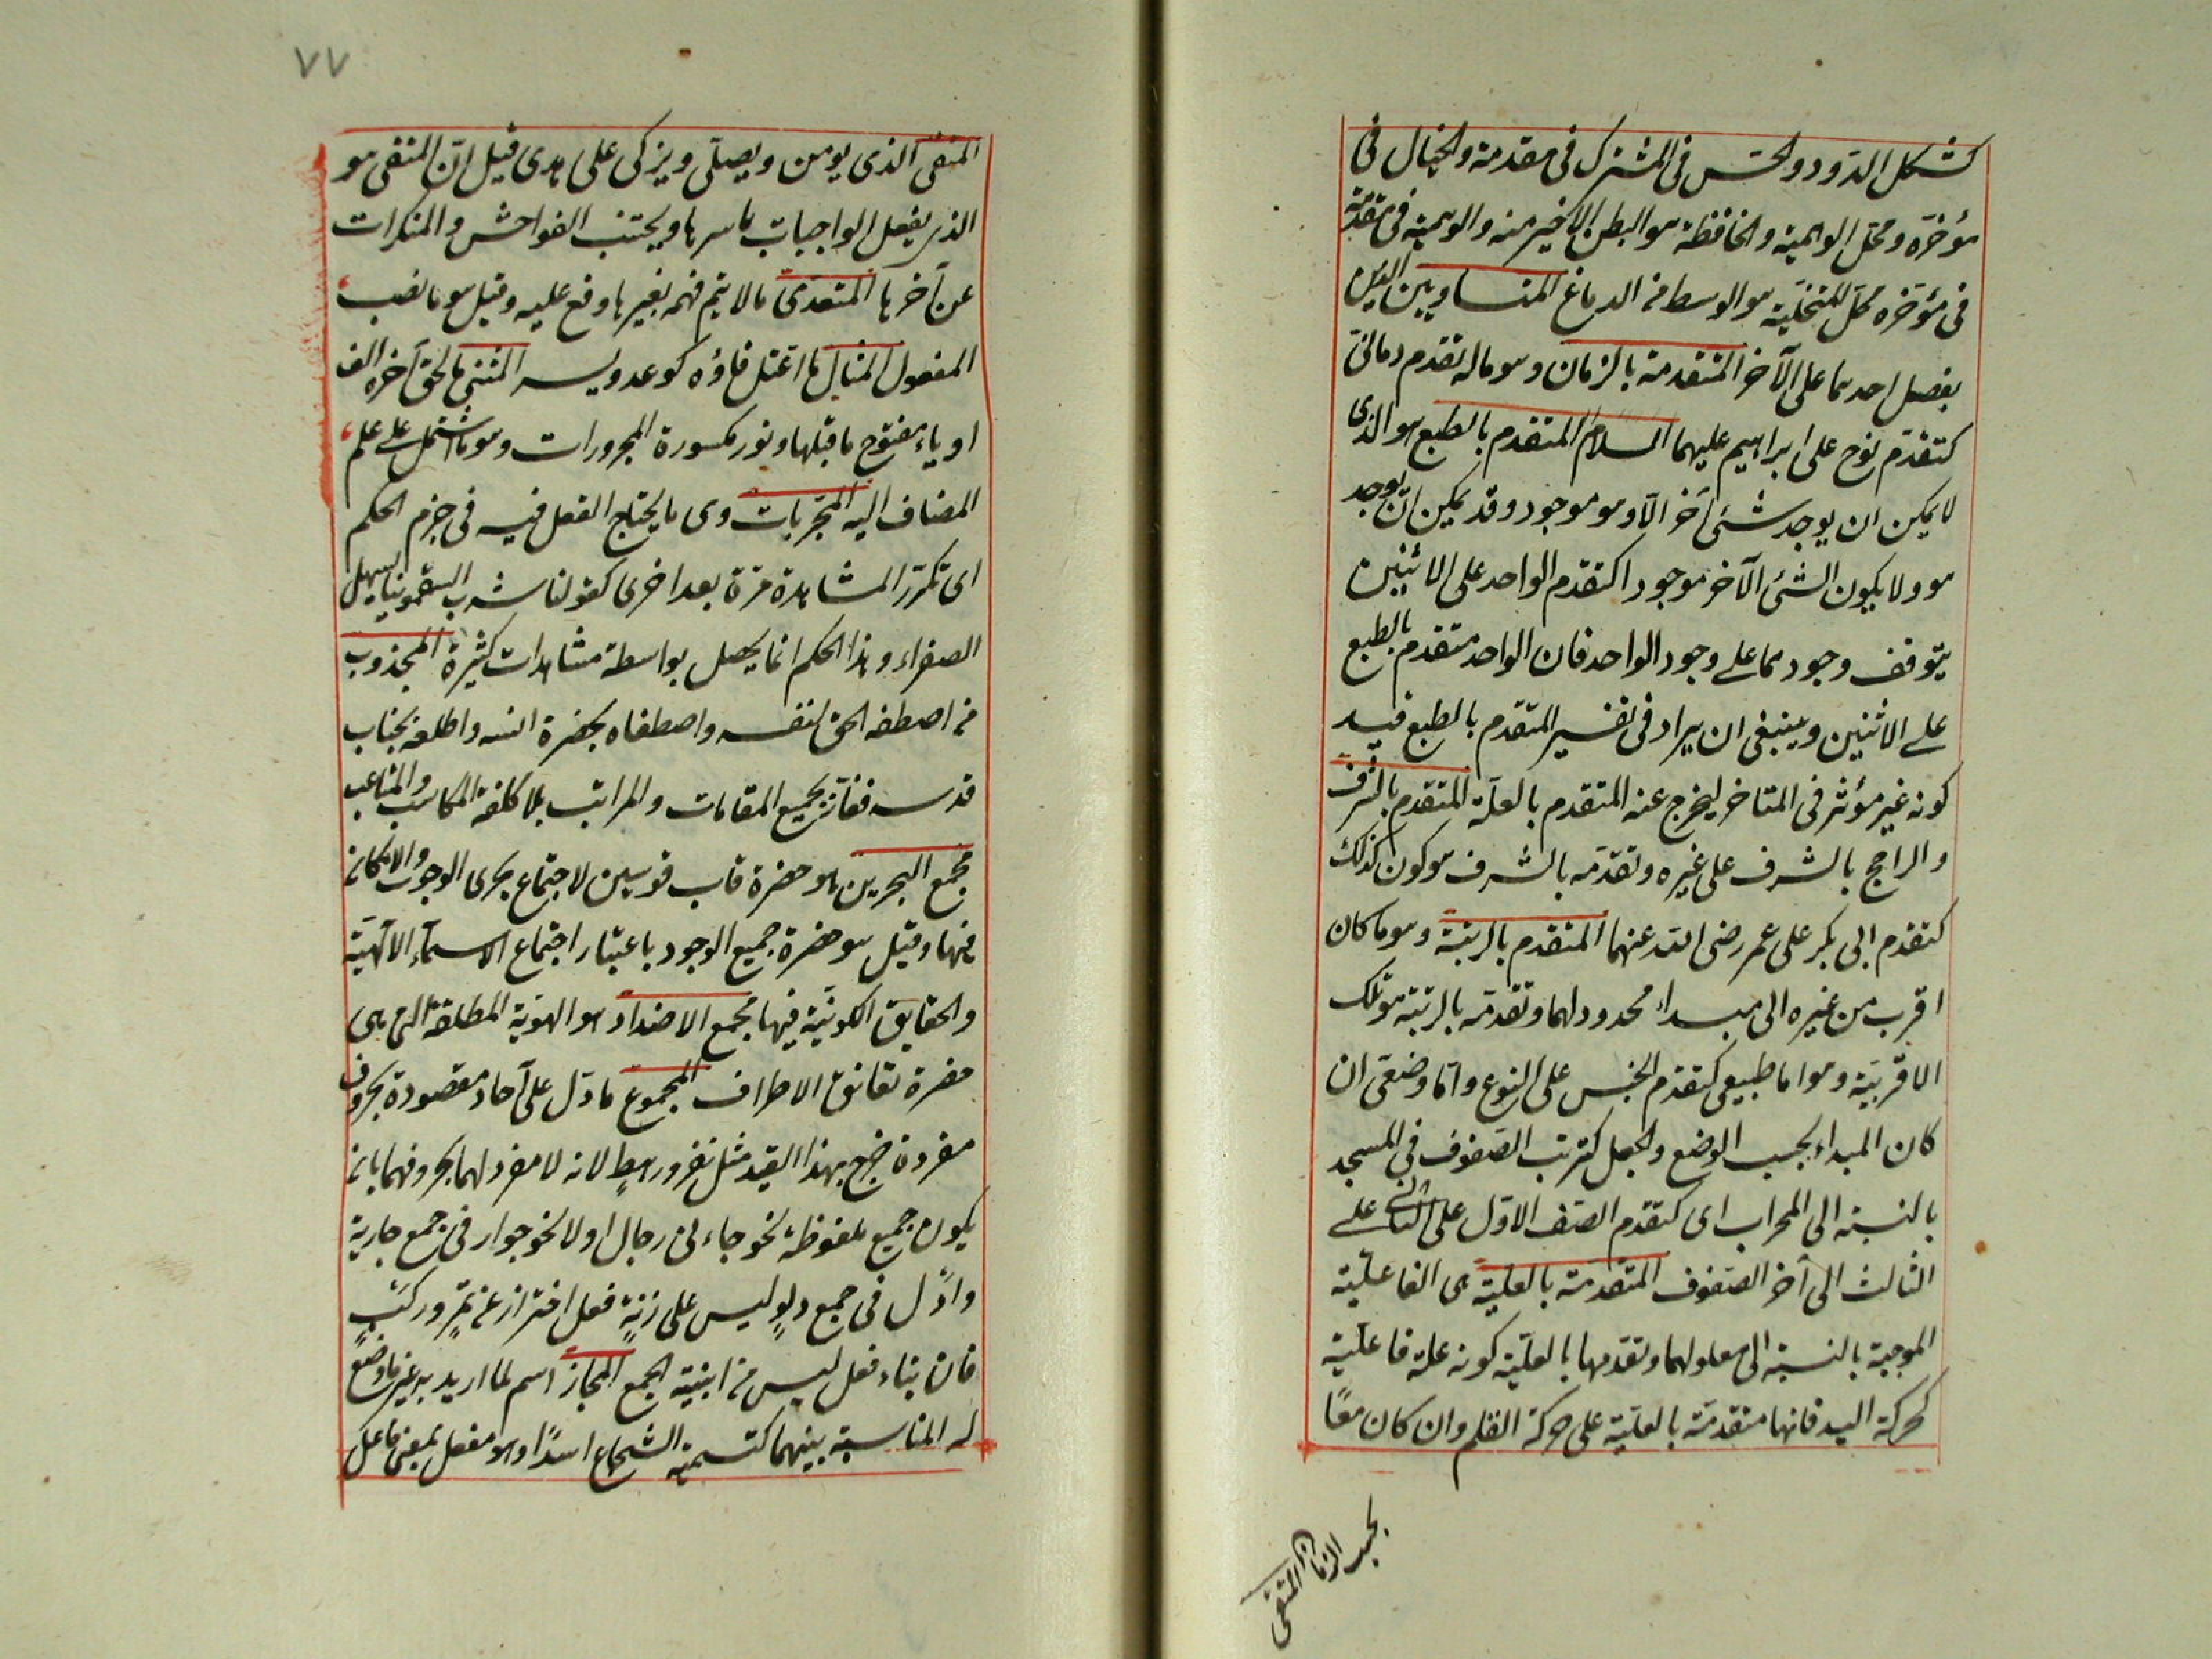 كشكل الدود والحس فى المشترك فى مقدمة والخيال فى
مؤخره ومحل الوهمية والحافظة هو البطن الاخير منه والوهمية فى مقدمته
فى مؤخره محل المتخيلة هو الوسط من الدماغ المتساويين الذين
يفصل احدهما على الآخر المتقدمة بالزمان وهو ماله تقدم زمانى
كتقدم نوح على ابراهيم عليهما السلام المتقدم بالطبع هو الذى
لا يمكن ان يوجد شئى آخر الا وهو موجود وقد يمكن ان يوجد
هو ولا يكون الشئ الآخر موجودا كتقدم الواحد على الاثنين
يتوقف وجودهما على وجود الواحد فان الواحد متقدم بالطبع
على الاثنين وينبغى ان يراد فى تفسير المتقدم بالطبع قيد
كونه غير مؤثر فى المتاخر ليخرج عنه المتقدم بالعلة المتقدم بالشرف
والراجح بالشرف على غيره وتقدمه بالشرف هو كون كذلك
كتقدم ابى بكر على عمر رضى الله عنهما المتقدم بالرتبة وهو ما كان
اقرب من غيره الى مبداء محدود لهما وتقدمه بالرتبة هو تلك
الاقربية وهو اما طبيعى كتقدم الجنس على النوع واما وضعى ان
كان المبداء بحسب الوضع والجعل كترتب الصفوف فى المسجد
بالنسبة الى المحراب اى كتقدم الصف الاول على الثانى على
الثالث الى آخر الصفوف المتقدمة بالعلية هى الفاعلية
الموجبة بالنسبة الى معلولهما وتقدمها بالعلية كونه علة فاعلية
كحركة اليد فانها متقدمة بالعلية على حركة القلم وان كان معًا
بحسب الزمان المتقى
٧٧
المتقى الذى يومن ويصلى ويزكى على هدى قيل ان المتقى هو
الذى يفعل الواجبات باسرها ويجتنب الفواحش والمنكرات
عن آخرها المتعدى ما لا يتم فهمه بغير ما وقع عليه وقيل هو ما نصب
المفعول المثال ما اعتل فاؤه كوعد ويسر المثنى ما لحق آخره الف
او ياء مفتوح ما قبلها ونون مكسورة المجرورات وهو ما اشتمل على علم
المضاف اليه المجربات وهى ما يحتاج العقل فيه فى جزم الحكم
اى تكرر المشاهدة مرة بعد اخرى كقولنا شرب السقمونيا يسهل
الصفراء وهذا الحكم انما يحصل بواسطة مشاهدات كثيرة المجذوب
من اصطفه الحق لنفسه واصطفاه بحضرة انسه واطلعه بجناب
قدسه ففاز بجميع المقامات والمراتب بلا كلفة المكاسب والمتاعب
مجمع البحرين هو حضرة قاب قوسين لاجتماع بحرى الوجوب والامكان
فيها وقيل هو حضرة جميع الوجود باعتبار اجتماع الاسماء الالهية
والحقايق الكونية فيها مجمع الاضداد هو الهوية المطلقة التى هى
حضرة تعانق الاطراف المجموع ما دل على آحاد مقصودة بحروف
مفرده خرج بهذا القيد مثل نفر ورهط لانه لا مفرد لهما بحروفهما بان
يكون جميع ملفوظة نحو جاءنى رجال او لا نحو جوار فى جمع جارية
وادل فى جمع دلو ليس على زنة فعل احتراز عن تمر وركب
فان بناء فعل ليس من ابنية الجمع المجاز اسم لما اريد به غير ما وضع
له المناسبة بينهما كتسمية الشجاع اسدًا وهو مفعل بمعنى فاعل